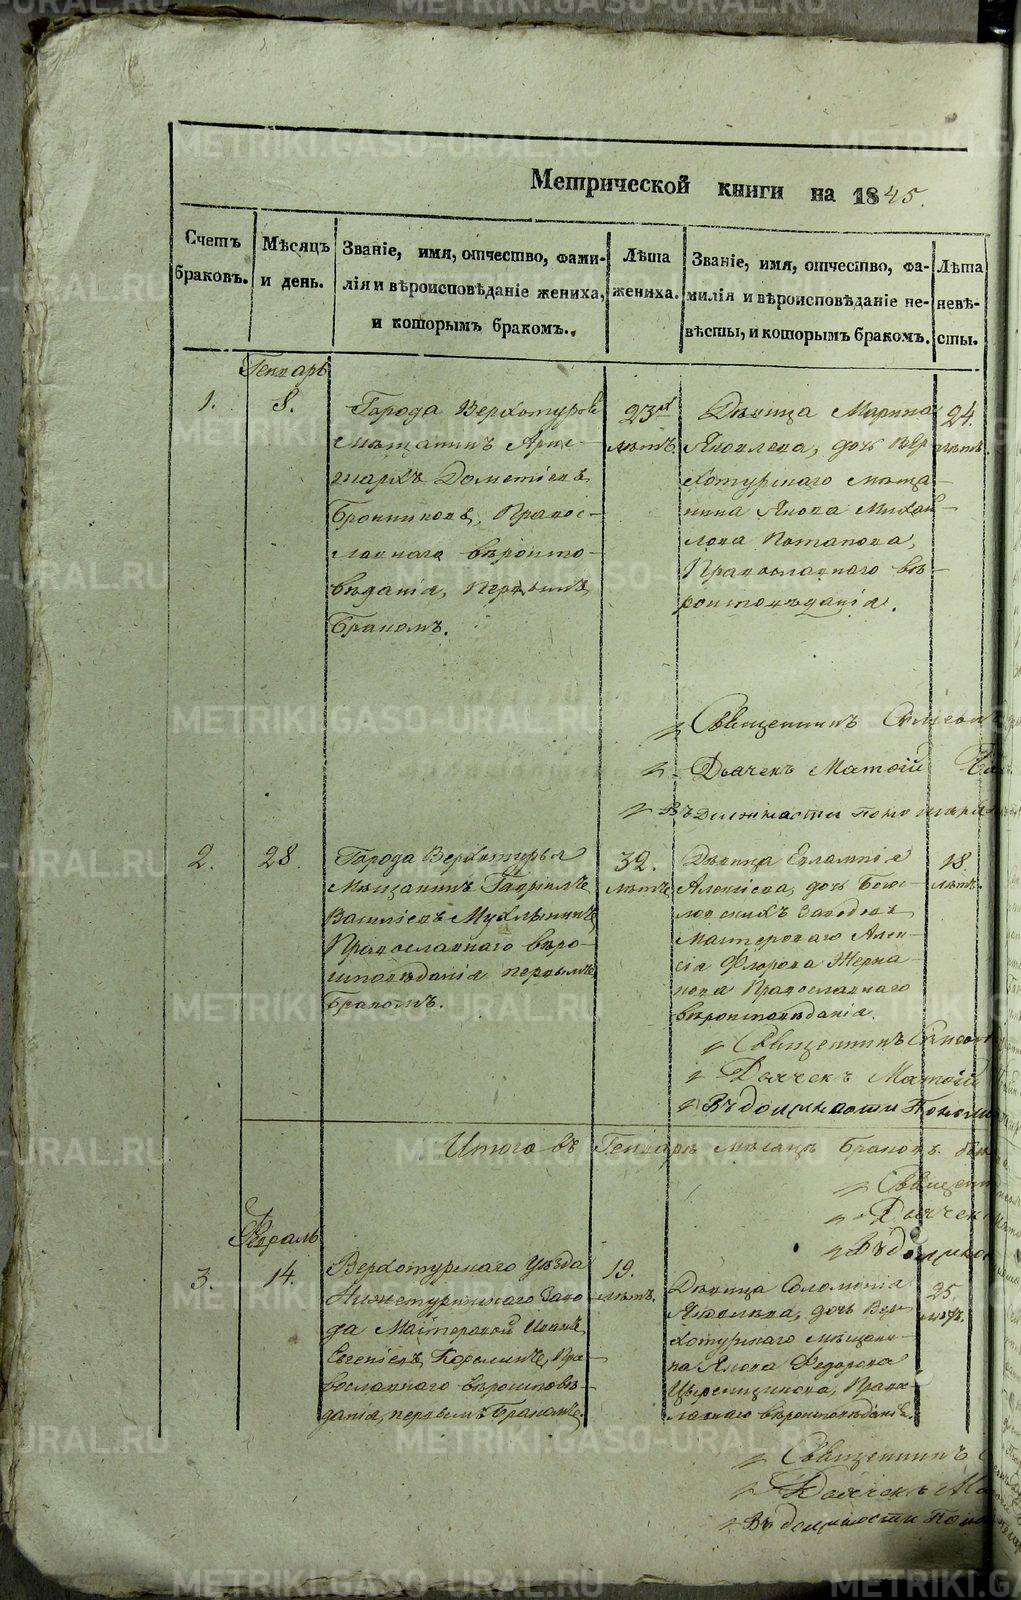 METRIKI.GASO-URAL.RU
Метрической книги на 1845.
Счетъ браковъ.
Мѣсяцъ и день.
Званіе, имя, отчество, фами-
лія и вѣроисповѣданіе жениха,
и которымъ бракомъ.
Лѣта
жениха.
Званіе, имя, отчество, фа-
милія и вѣроисповѣданіе не-
вѣсты, и которымъ бракомъ.
Лѣта
невѣ-
сты.
Генварь
1.
8.
Города Верхотурья
Мѣщанинъ Арис-
тархъ Дометіевъ
Бронниковъ, Правос-
лавнаго вѣроиспо-
вѣданія, Первымъ
Бракомъ.
23
лѣтъ.
Дѣвица Марина
Яковлева, дочь Вер-
хотурскаго мѣща-
нина Якова Михай-
лова Потапова,
Православнаго вѣ-
роисповѣданія.
24.
лѣтъ.
Священникъ Симеонъ
Дьячекъ Матѳій
Въ должности пономаря
2.
28.
Города Верхотурья
Мѣщанинъ Гавріилъ
Василіевъ Мухлынинъ,
Православнаго вѣро-
исповѣданія первымъ
Бракомъ.
32.
лѣтъ
Дѣвица Евлампія
Алексіева, дочь Богос-
ловскихъ Заводовъ
Мастероваго Алек-
сія Флорова Жерна-
кова Православнаго
вѣроисповѣданія.
18
лѣтъ.
Священникъ Симеонъ
Дьячекъ Матѳій
Въ должности Пономаря
Итого въ Генварѣ мѣсяцѣ Браковъ
Священ
Дьячекъ
Въ должнос
Февраль
3.
14.
Верхотурскаго Уѣзда
Нижнетуринскаго Заво-
да Мастеровой Иванъ
Евгеніевъ Корелинъ, Пра-
вославнаго вѣроисповѣ-
данія, первымъ Бракомъ.
19.
лѣтъ.
Дѣвица Соломонія
Яковлева, дочь Вер-
хотурскаго мѣщани-
на Якова Федорова
Православнаго вѣроисповѣданія.
25.
лѣтъ.
Священникъ
Дьячекъ Ма
Въ должности Поно